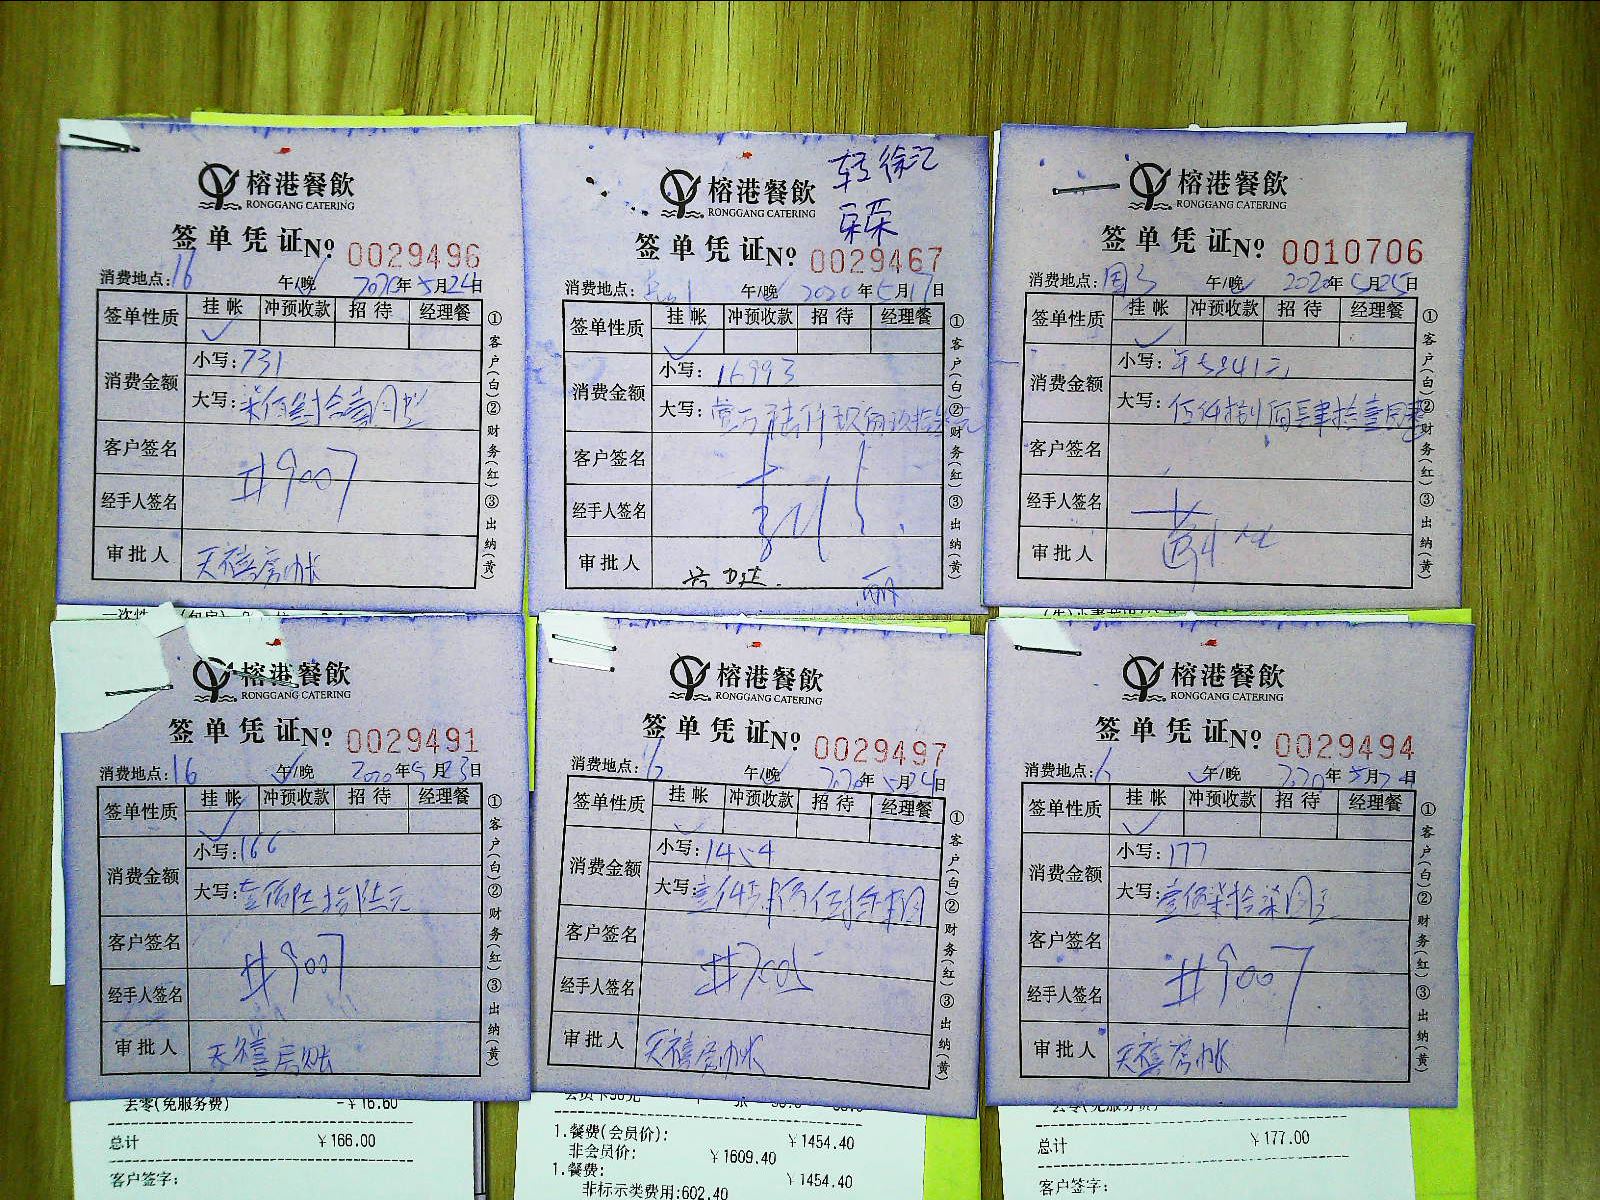 榕港餐飲
RONGGANG CATERING
签单凭证 Nº 0029496
消费地点: 16 午/晚 2020年5月24日
签单性质 挂帐 冲预收款 招待 经理餐
消费金额 小写: 731
大写:
客户签名 #9007
经手人签名
审批人 天禧房帐
①客户(白)②财务(红)③出纳(黄)
榕港餐飲
RONGGANG CATERING
签单凭证 Nº 0029467
消费地点: 午/晚 2020年5月17日
签单性质 挂帐 冲预收款 招待 经理餐
消费金额 小写: 16993
大写:
客户签名
经手人签名
审批人
①客户(白)②财务(红)③出纳(黄)
榕港餐飲
RONGGANG CATERING
签单凭证 Nº 0010706
消费地点: 午/晚 2020年5月25日
签单性质 挂帐 冲预收款 招待 经理餐
消费金额 小写:
大写:
客户签名
经手人签名
审批人
①客户(白)②财务(红)③出纳(黄)
榕港餐飲
RONGGANG CATERING
签单凭证 Nº 0029491
消费地点: 16 午/晚 2020年5月23日
签单性质 挂帐 冲预收款 招待 经理餐
消费金额 小写: 166
大写: 壹佰陆拾陆元
客户签名 #9007
经手人签名
审批人 天禧房账
①客户(白)②财务(红)③出纳(黄)
去零(免服务费) -¥16.60
总计 ¥166.00
客户签字:
榕港餐飲
RONGGANG CATERING
签单凭证 Nº 0029497
消费地点: 16 午/晚 2020年5月24日
签单性质 挂帐 冲预收款 招待 经理餐
消费金额 小写: 1454
大写:
客户签名 #7005
经手人签名
审批人 天禧房帐
①客户(白)②财务(红)③出纳(黄)
1.餐费(会员价): ¥1454.40
非会员价: ¥1609.40
1.餐费: ¥1454.40
非标示类费用:602.40
榕港餐飲
RONGGANG CATERING
签单凭证 Nº 0029494
消费地点: 6 午/晚 2020年5月24日
签单性质 挂帐 冲预收款 招待 经理餐
消费金额 小写: 177
大写: 壹佰柒拾柒圆
客户签名 #9007
经手人签名
审批人 天禧房帐
①客户(白)②财务(红)③出纳(黄)
总计 ¥177.00
客户签字: